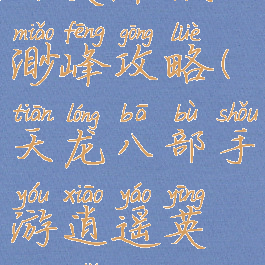 miǎo fēng gōng lüè
渺峰攻略(
tiān lóng bā bù shǒu
天龙八部手
yóu xiāo yáo yīng
游逍遥英